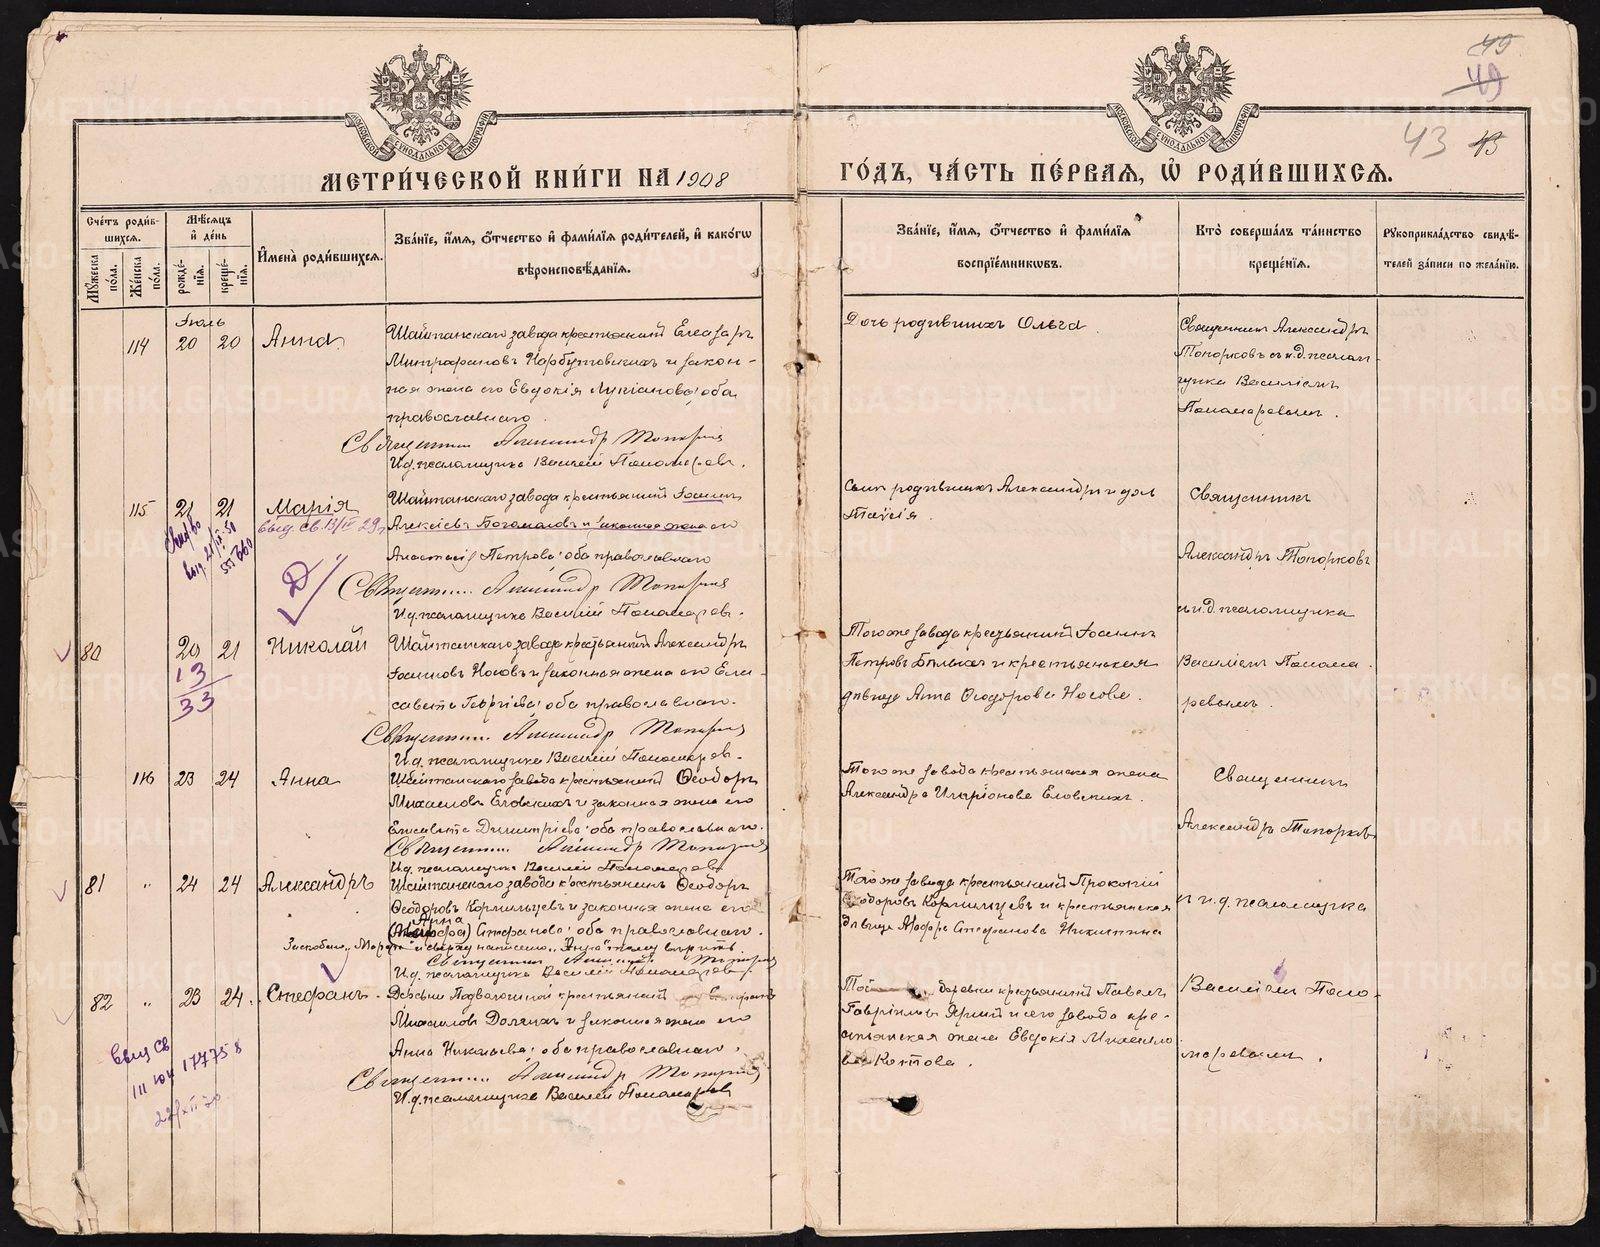 49
49
43 43
МЕТРИ́ЧЕСКОЙ КНИ́ГИ НА 1908
ГО́ДЪ, ЧА́СТЬ ПЕ́РВАЯ, Ѽ РОДИ́ВШИХСЯ.
Сче́тъ роди́в-
шихся.
Мѣ́сяцъ
и҆ де́нь
Мꙋ́жеска
по́ла.
Же́нска
по́ла.
рожде́-
нїя.
креще́-
нїя.
И҆мена̀ роди́вшихся.
Зва́нїе, и҆́мя, ѻ҆́тчество и҆ фами́лїя роди́телей, и҆ како́гѡ
вѣроисповѣ́данїя.
Зва́нїе, и҆́мя, ѻ҆́тчество и҆ фами́лїя
воспрїе́мникѡвъ.
Кто̀ соверша́лъ та́инство
креще́нїя.
Рꙋкоприкла́дство свидѣ́-
телей за́писи по жела́нїю.
Іюль
114 20 20 Анна
Шайтанскаго завода крестьянинъ Елеазаръ
Митрофановъ Карбутовскихъ и закон-
ная жена его Евдокія Лукіанова; оба
православнаго.
Священникъ Александръ Топорковъ
И.д. псаломщика Василій Пономаревъ.
Дочь родившихъ Ольга.
Священникъ Александръ
Топорковъ съ и.д. псалом-
щика Василіемъ
Пономаревымъ.
115 21 21 Марія
Шайтанскаго завода крестьянинъ Іоаннъ
Алексѣевъ Богомоловъ и законная жена его
Анастасія Петрова; оба православнаго
Священникъ Александръ Топорковъ
И.д. псаломщика Василій Пономаревъ.
выд св. 13/IV 29 г
555660
Д
Сынъ родившихъ Александръ и дочь
Таисія.
Священникъ
Александръ Топорковъ
и и.д. псаломщика
80 20 21 Николай
13
33
Шайтанскаго завода крестьянинъ Александръ
Іоанновъ Носовъ и законная жена его Ели-
савета Георгіева; оба православнаго.
Священникъ Александръ Топорковъ
И.д. псаломщика Василій Пономаревъ.
Того же завода крестьянинъ Іоаннъ
Петровъ Бѣлыхъ и крестьянская
дѣвица Анна Ѳеодорова Носова.
Василіемъ Понома-
ревымъ.
116 23 24 Анна
Шайтанскаго завода крестьянинъ Ѳеодоръ
Михаиловъ Еловскихъ и законная жена его
Елисавета Димитріева; оба православнаго.
Священникъ Александръ Топорковъ
И.д. псаломщика Василій Пономаревъ
Того же завода крестьянская жена
Александра Иларіонова Еловскихъ.
Священникъ
Александръ Топорковъ
81 " 24 24 Александръ
Шайтанскаго завода крестьянинъ Ѳеодоръ
Ѳеодоровъ Кормильцевъ и законная жена его
Анна
Стефанова; оба православнаго.
Заскоблено "Марфа" и сверху написано "Анна" тому вѣрить.
Священникъ Александръ Топорковъ
И.д. псаломщика Василій Пономаревъ.
Того же завода крестьянинъ Прокопій
Ѳеодоровъ Кормильцевъ и крестьянская
дѣвица Марфа Стефанова Никитина
и и.д. псаломщика
82 " 23 24. Стефанъ.
Деревни Подволошной крестьянинъ
Михаиловъ Долгихъ и законная жена его
Анна Николаева; оба православнаго.
Священникъ Александръ Топорковъ
И.д. псаломщика Василій Пономаревъ
выд св
III юч 174758
22/XII 30
деревни крестьянинъ Павелъ
Гавріиловъ и его завода кре-
стьянская жена Евдокія Михаило-
ва Котова.
Василіемъ Поно-
маревымъ.